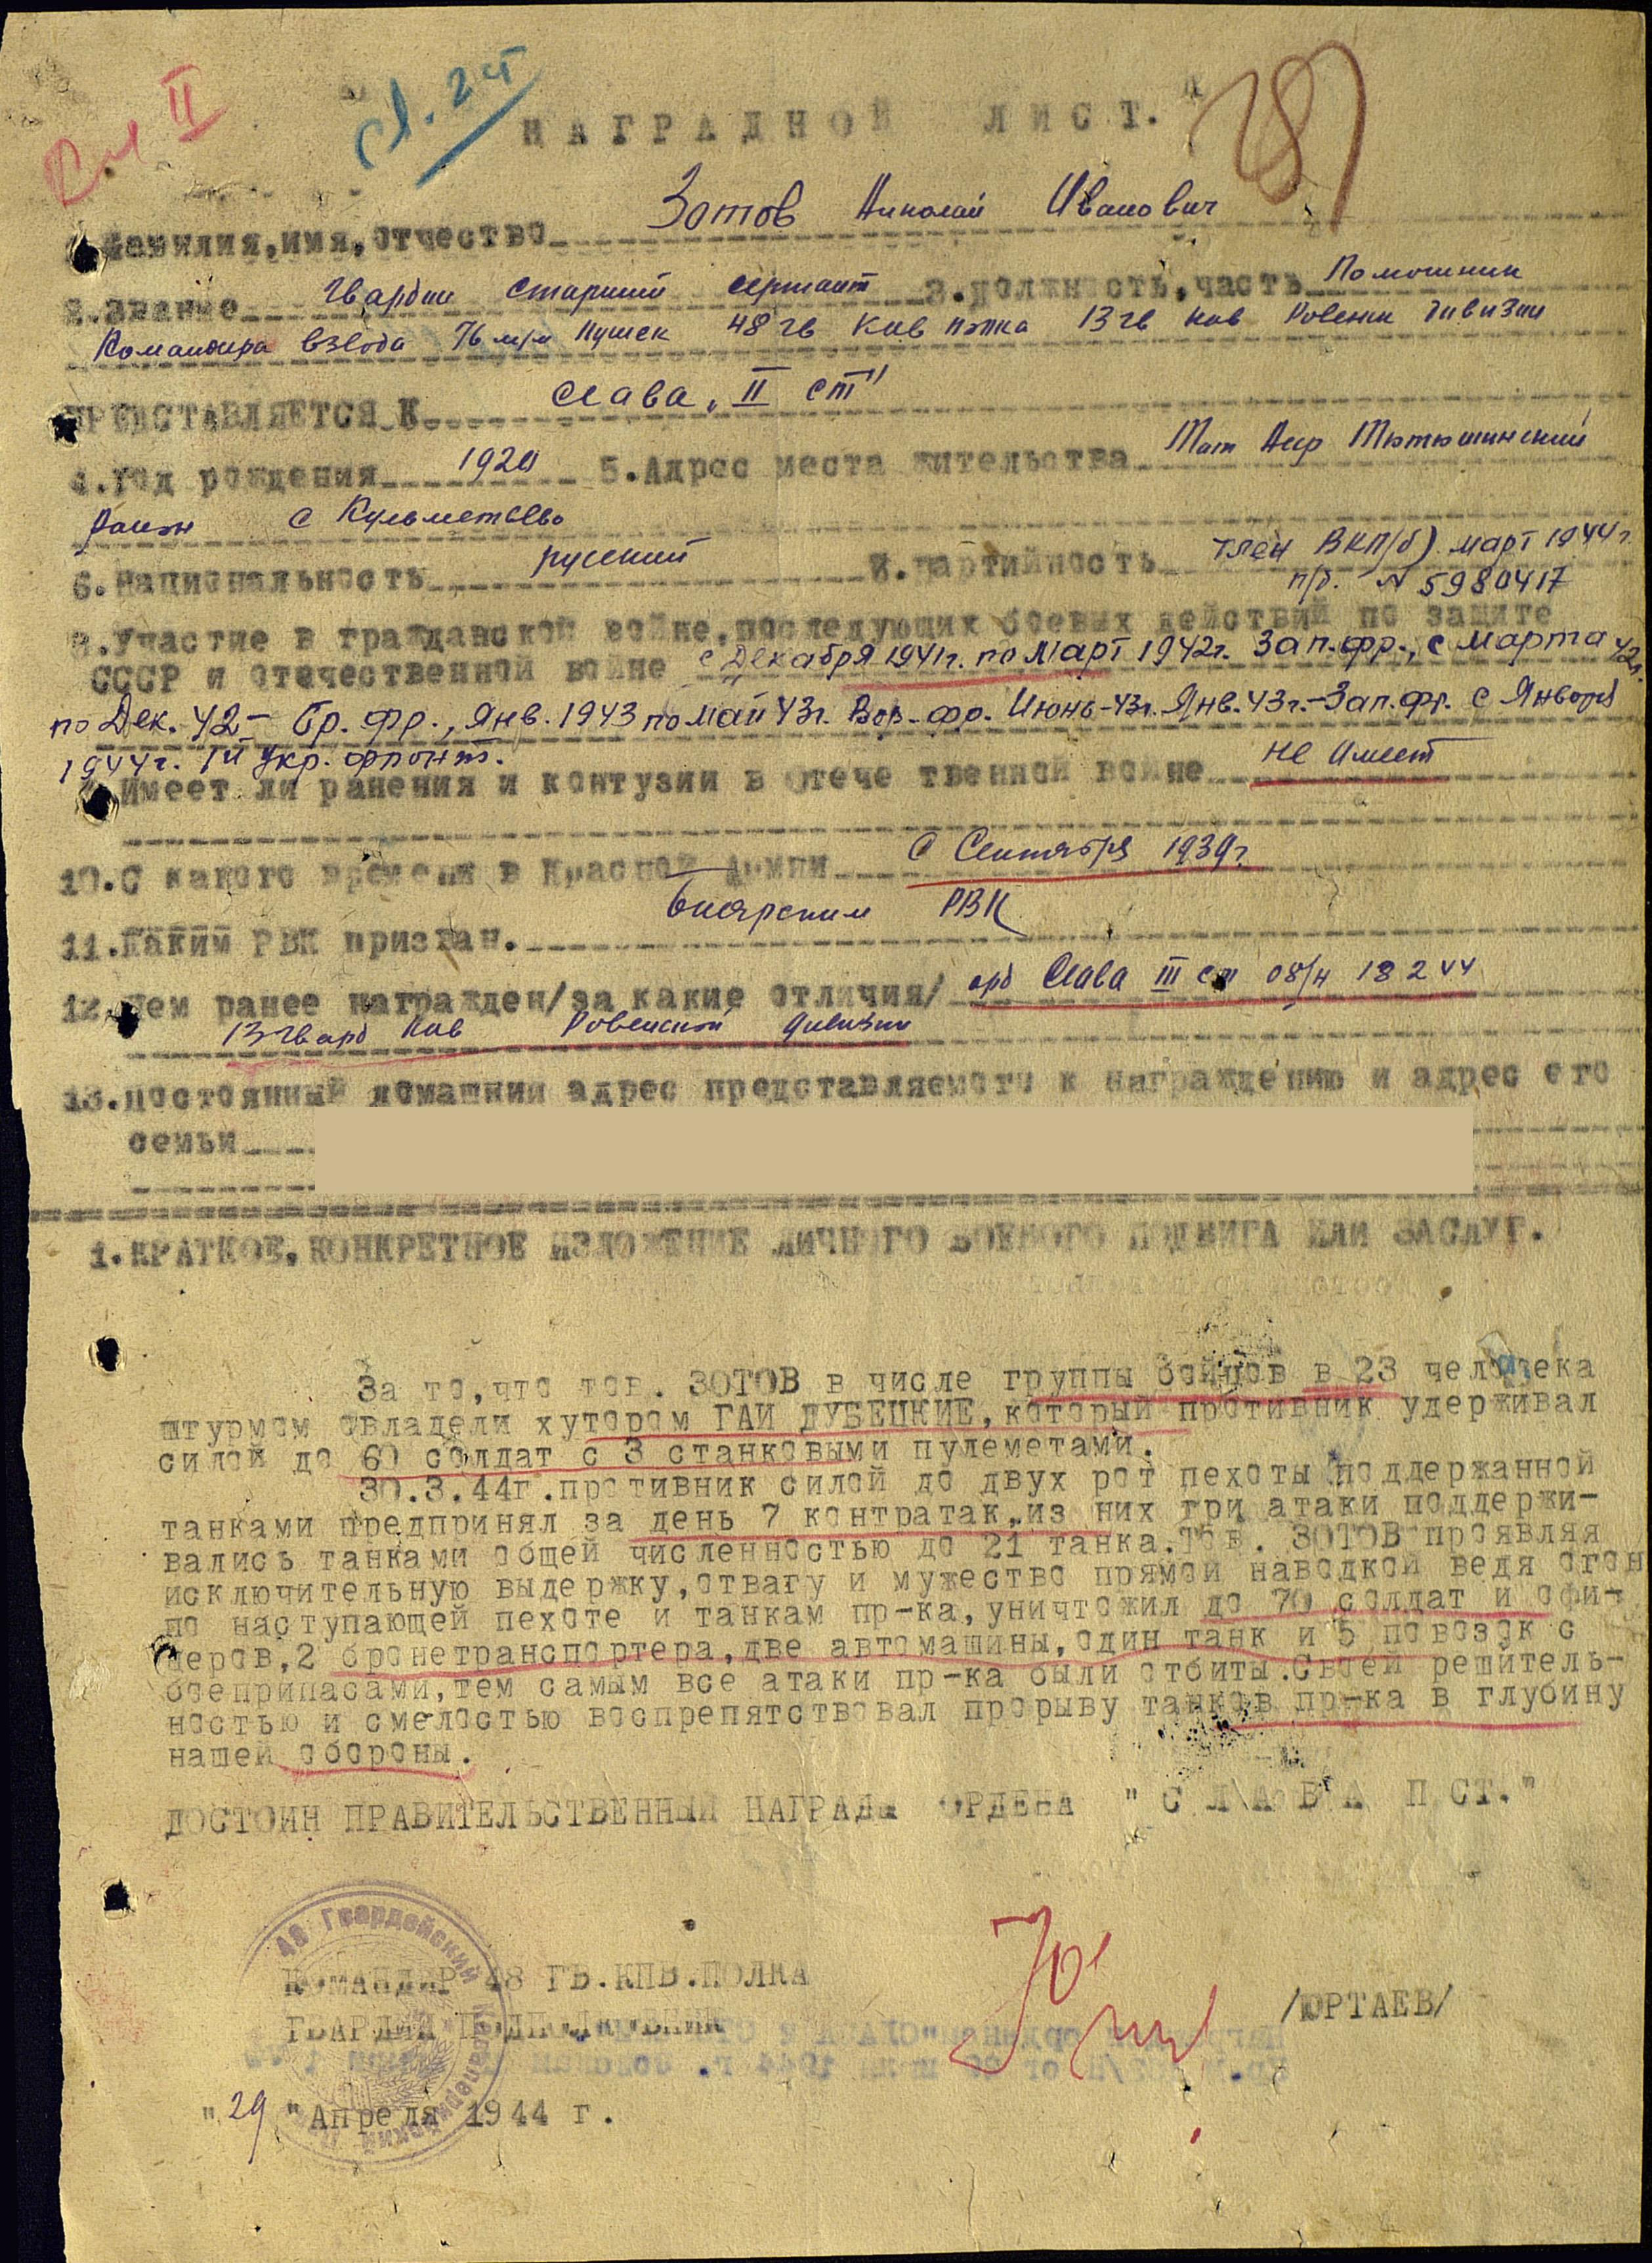 См II
сл. 2 ст
" НАГРАДНОЙ ЛИСТ. "
Фамилия, имя, отчество Зотов Николай Иванович
2.Звание Гвардии Старший сержант 3.Должность, часть Помошник
Командира взвода 76 м/м пушек 48 гв Кав полка 13 гв кав Ровенск дивизии
ПРЕДСТАВЛЯЕТСЯ К Слава „II ст"
4.Год рождения 1920 5.Адрес места жительства Тат Аср Тютюшинский
район с Кульметьево
6.Национальность русский 7.Партийность член ВКП/б) март 1944г.
п/б. N 5980417
8.Участие в гражданской войне, последующих боевых действий по защите
СССР и Отечественной войне с Декабря 1941г. по Март 1942г. Зап.фр., с марта 42г.
по Дек. 42 – Бр. фр., Янв. 1943 по май 43г. Вор. фр. Июнь-43г. Янв.43г.–Зап.фр. с Января
1944г. 1й Укр. фронт.
Имеет ли ранения и контузии в Отече твенной войне не имеет
10.С какого времени в Красной Армии С Сентября 1939г
11.Каким РВК призван. Билярским РВК
12.Чем ранее награжден/за какие отличия/ орд Слава III ст 08/н 18 2 44
13 гвард Кав Ровенской дивизии
13.Постоянный домашний адрес представляемого к награждению и адрес его
семьи
1.КРАТКОЕ, КОНКРЕТНОЕ ИЗЛОЖЕНИЕ ЛИЧНОГО БОЕВОГО ПОДВИГА ИЛИ ЗАСЛУГ.
За то, что тов. ЗОТОВ в числе группы бойцов в 23 человека
штурмом овладели хутором ГАИ ДУБЕЦКИЕ, который противник удерживал
силой до 60 солдат с 3 станковыми пулеметами.
30.3.44г. противник силой до двух рот пехоты поддержанной
танками предпринял за день 7 контратак, из них три атаки поддержи-
вались танками общей численностью до 21 танка. Тов. ЗОТОВ проявляя
исключительную выдержку, отвагу и мужество прямой наводкой ведя огон
по наступающей пехоте и танкам пр-ка, уничтожил до 70 солдат и офи-
церов, 2 бронетранспортера, две автомашины, один танк и 5 повозок с
боеприпасами, тем самым все атаки пр-ка были отбиты. Своей решитель-
ностью и смелостью воспрепятствовал прорыву танков пр-ка в глубину
нашей обороны.
ДОСТОИН ПРАВИТЕЛЬСТВЕННЫЙ НАГРАДЫ ОРДЕНА " С Л А В А П СТ."
48 Гвардейский Кавалерийский Полк
КОМАНДИР 48 ГВ.КПВ.ПОЛКА
ГВАРДИИ ПОДПОЛКОВНИК /ЮРТАЕВ/
" 29 " Апреля 1944 г.